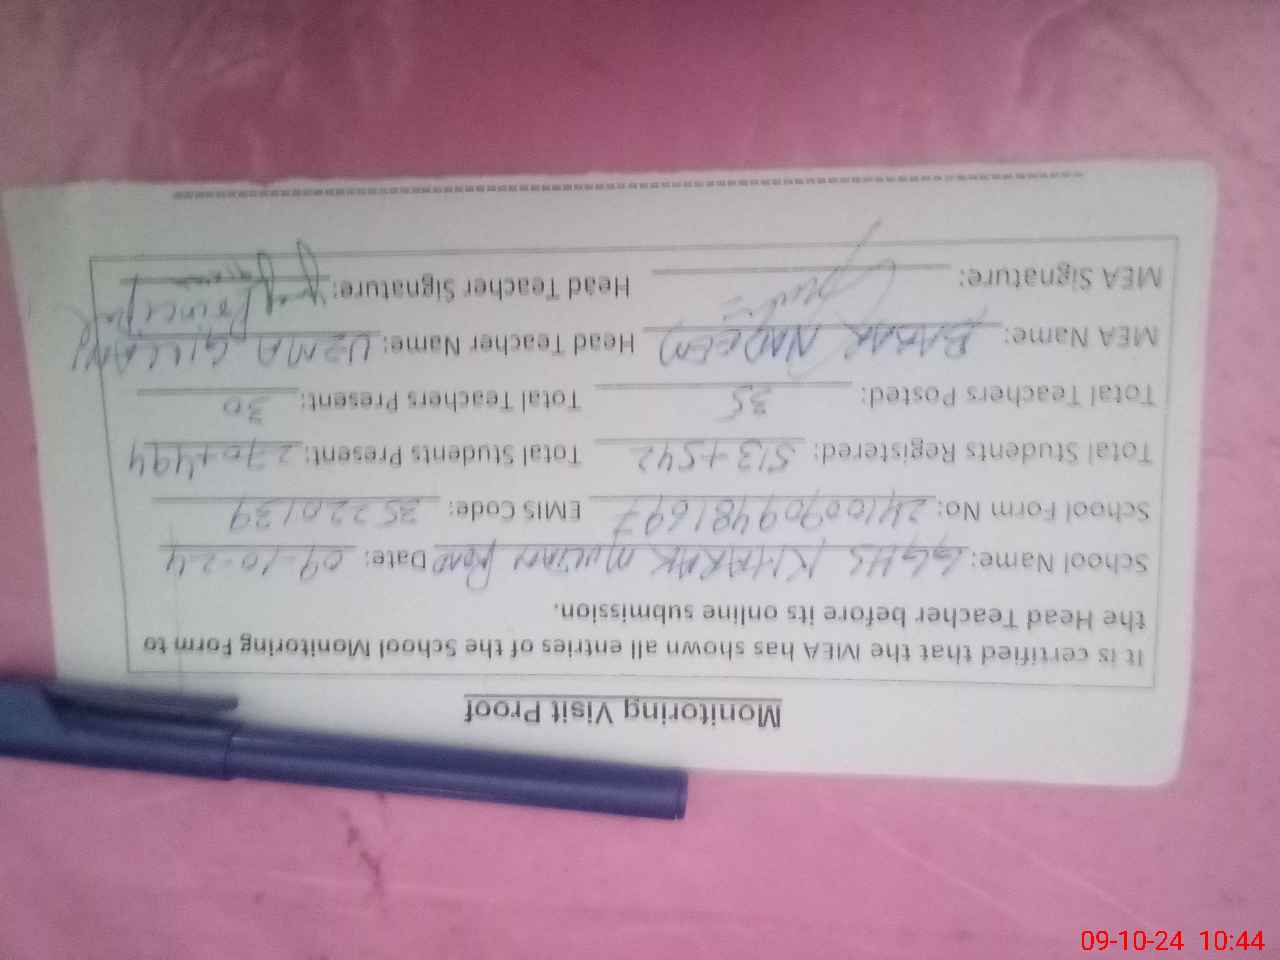 Monitoring Visit Proof
It is certified that the MEA has shown all entries of the School Monitoring Form to
the Head Teacher before its online submission.
School Name: GGHS KHARAK MULTAN ROAD Date: 09-10-24
School Form No: 241009094816697 EMIS Code: 35220139
Total Students Registered: 513+542 Total Students Present: 270+494
Total Teachers Posted: 35 Total Teachers Present: 30
MEA Name: BABAR NADEEM Head Teacher Name: UZMA GILLANI
Principal
MEA Signature: Head Teacher Signature:
09-10-24 10:44